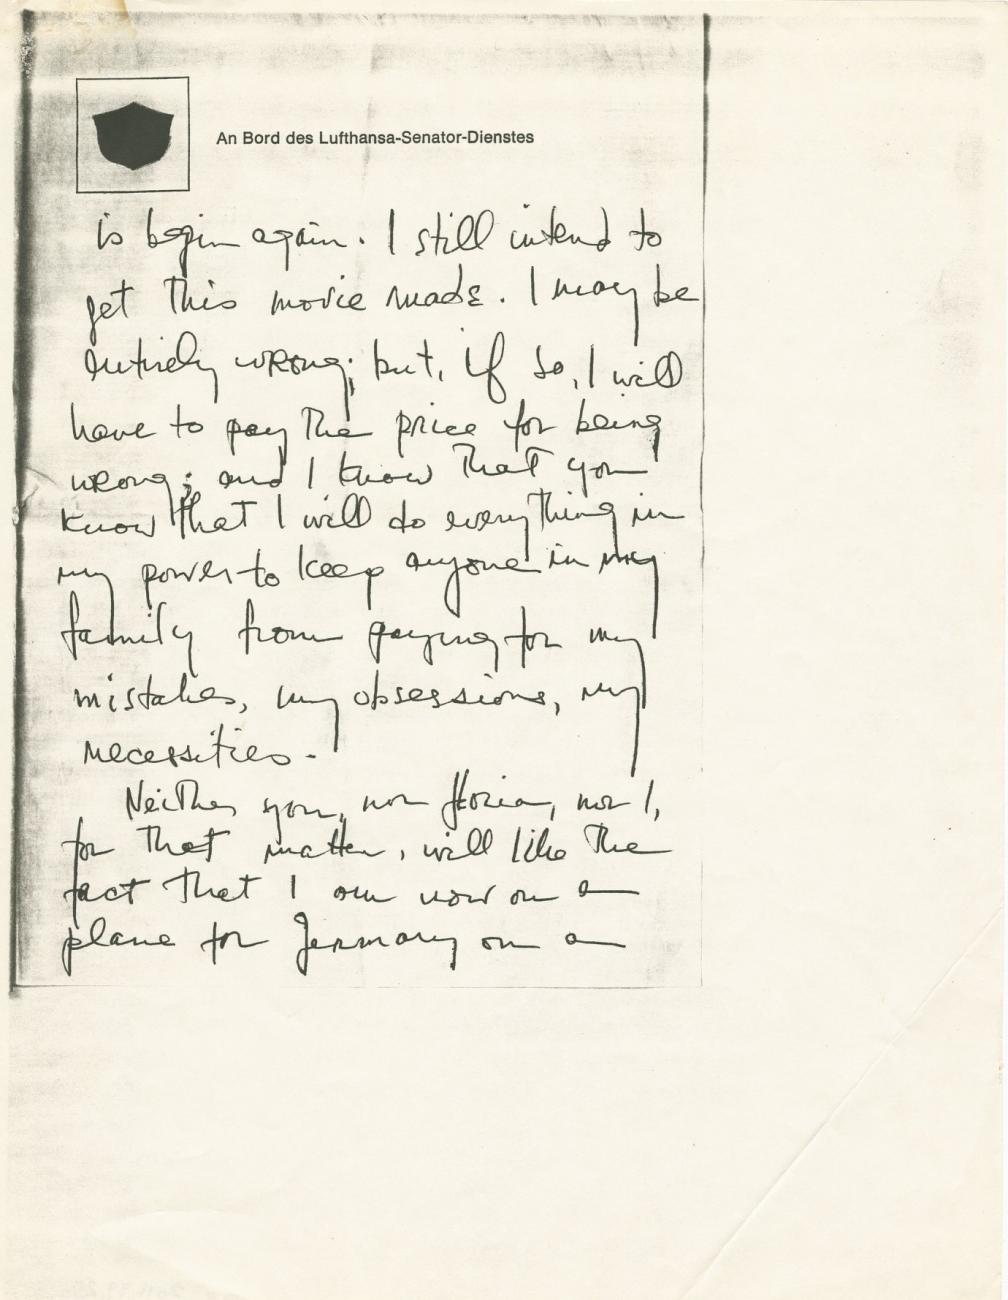 An Bord des Lufthansa-Senator-Dienstes
is begin again. I still intend to
get this movie made. I may be
entirely wrong; but, if so, I will
have to pay the price for being
wrong; and I know that you
know that I will do everything in
my power to keep anyone in my
family from paying for my
mistakes, my obsessions, my
necessities.
Neither you, nor Gloria, nor I,
for that matter, will like the
fact that I am now on a
plane for Germany on a